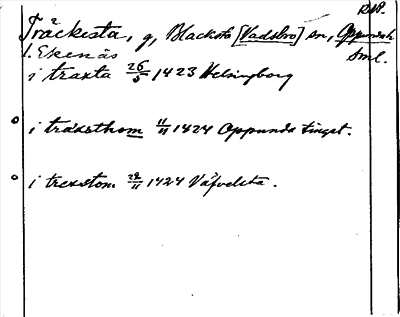 RAP.
Träckista, g, Blacksta [Vadsbro] sn, Oppunda h.
l. Ekenäs Sml.
i traxta 26/5 1423 Helsingborg
i träxsthom 11/11 1424 Oppunda tingst.
i trexstom 29/11 1424 Väfvelsta.